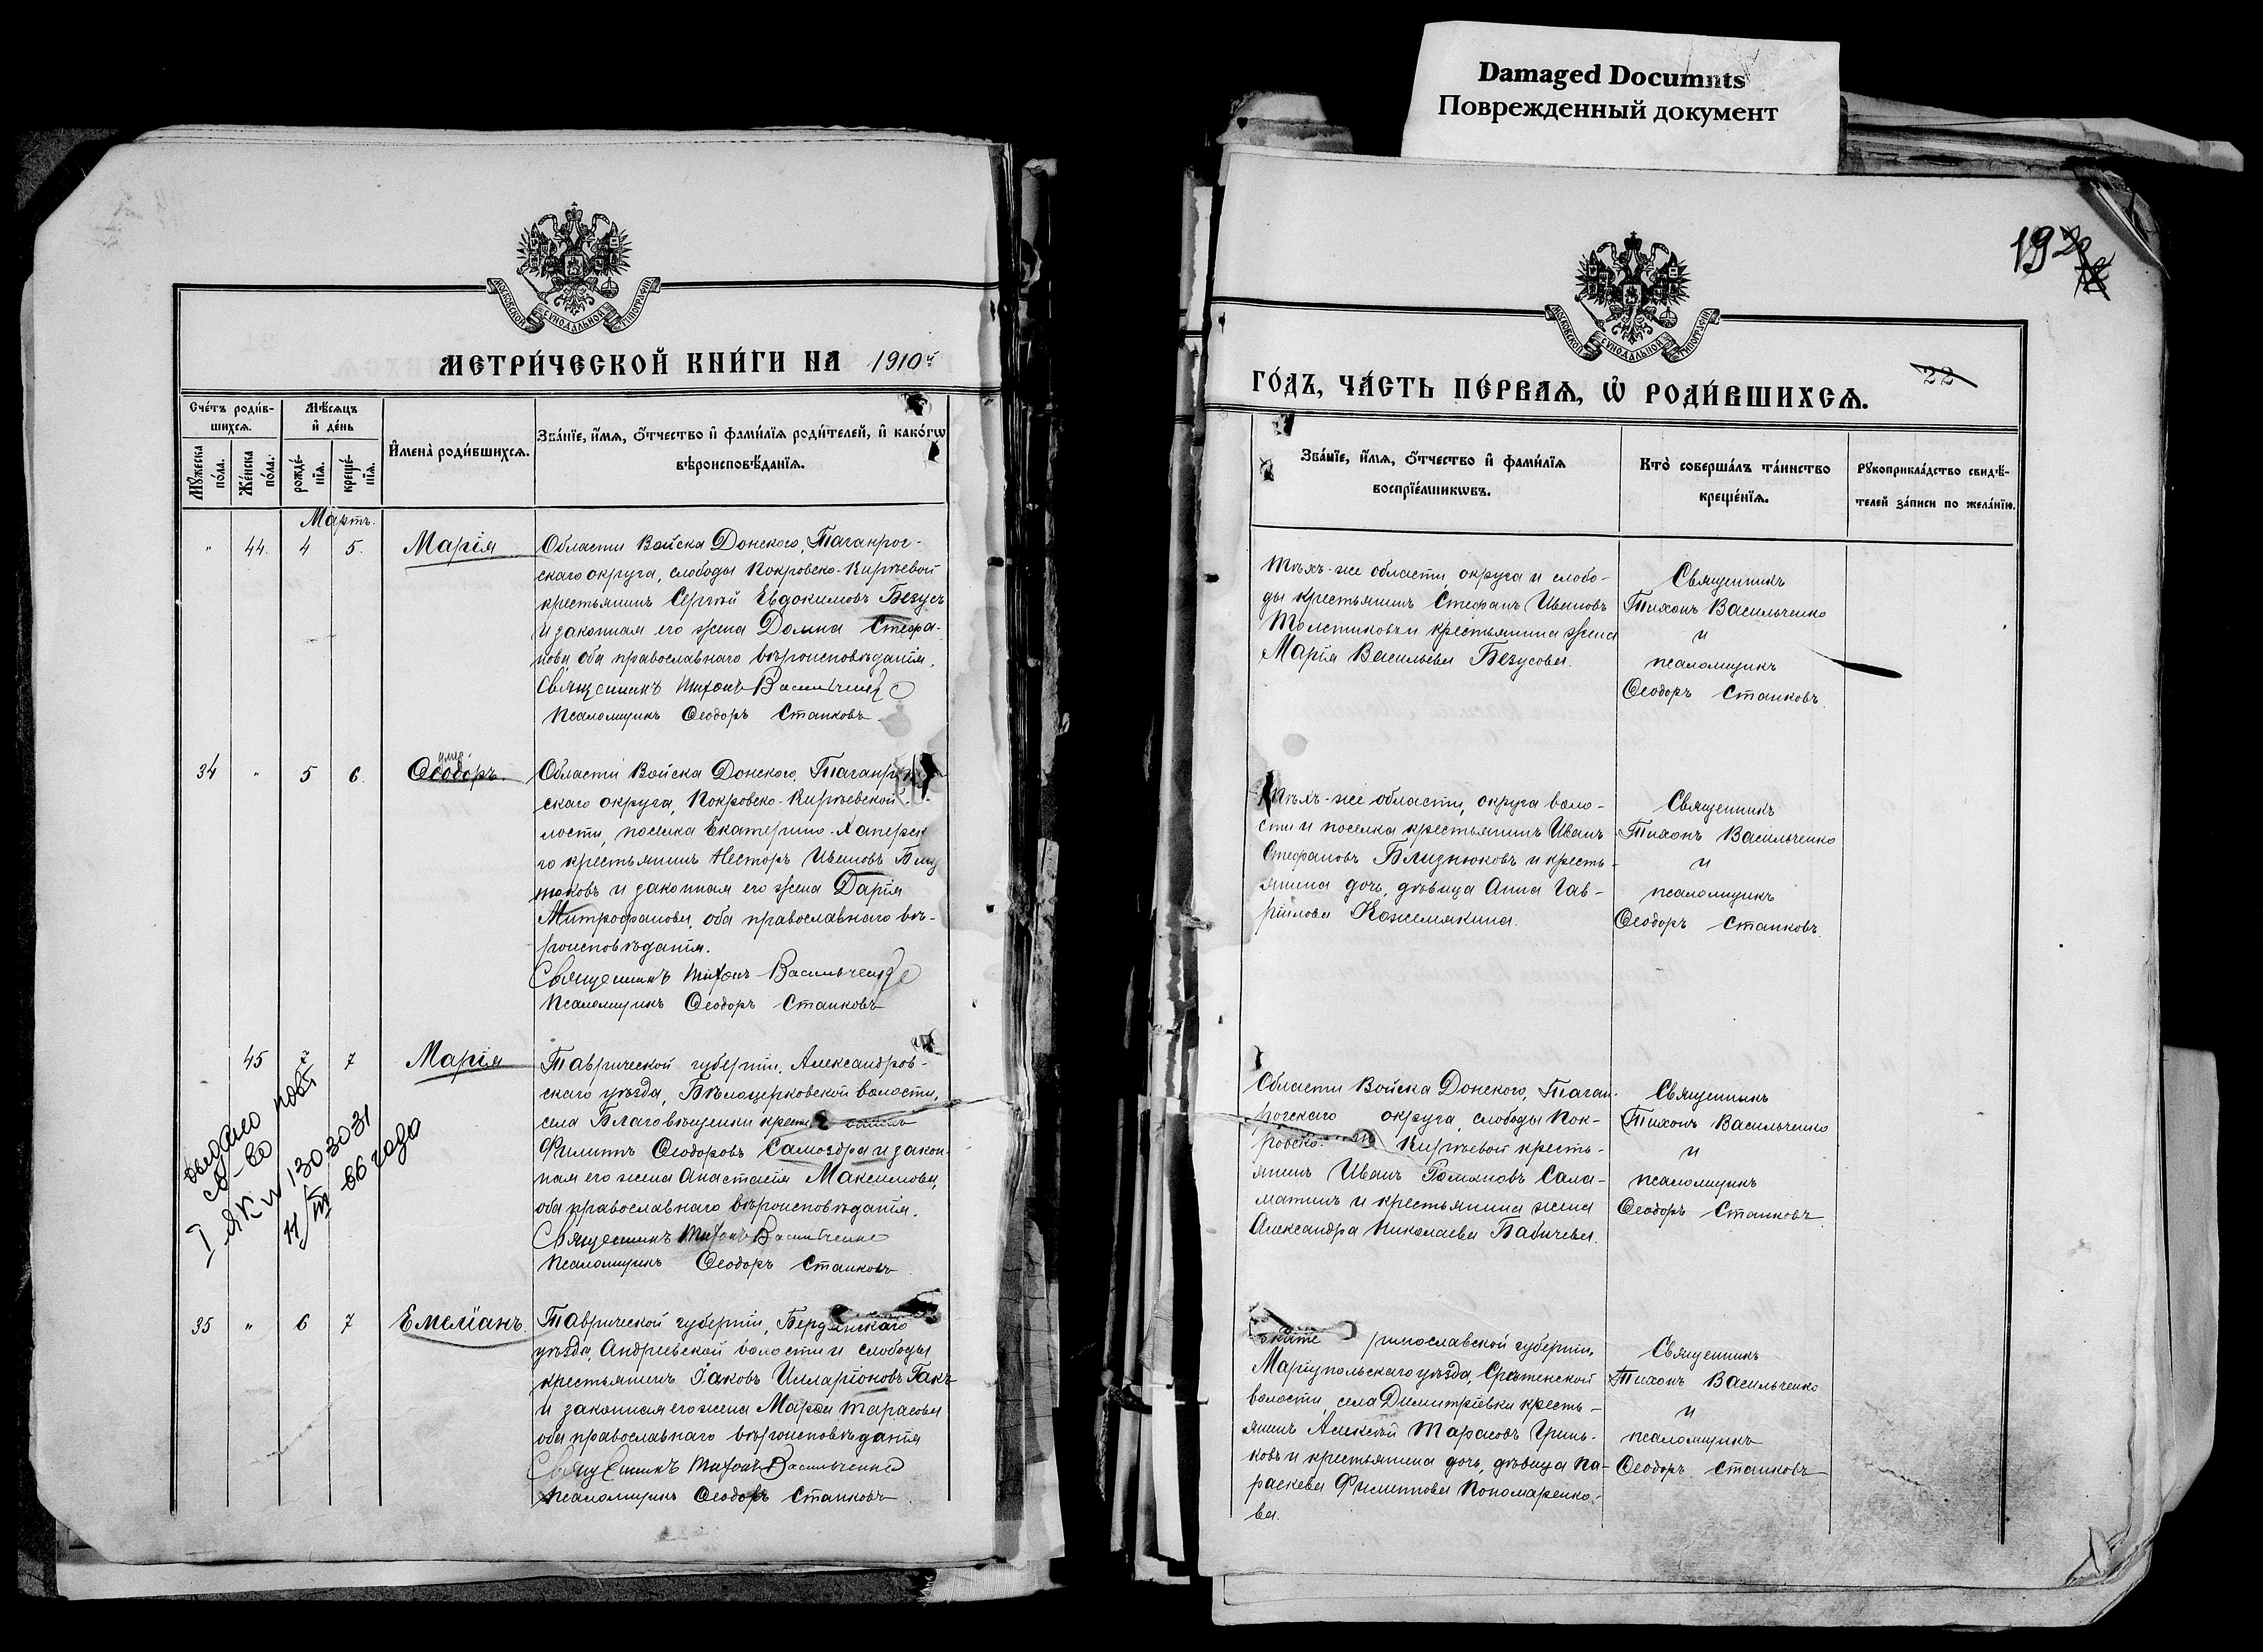 Damaged Documnts
Поврежденный документ
МОСКОВСКОЙ СѴНОДАЛЬНОЙ ТИПОГРАФІИ
МЕТРИ́ЧЕСКОЙ КНИ́ГИ НА 1910й
Сче́тъ роди́в-
шихсѧ.
Мꙋ́жеска
по́ла.
Же́нска
по́ла.
Мѣ́сѧцъ
и҆ де́нь
рожде́-
нїѧ.
креще́-
нїѧ.
И҆мена̀ роди́вшихсѧ.
Зва́нїе, и҆́мѧ, ѻ҆́тчество и҆ фами́лїѧ роди́телей, и҆ како́гѡ
вѣроисповѣ́данїѧ.
Мартъ.
" 44. 4 5. Марія
Области Войска Донского, Таганрог-
скаго округа, слободы Покровско-Кирѣевой
крестьянинъ Сергѣй Евдокимовъ Безусъ
и законная его жена Домна Стефа-
нова, оба православнаго вѣроисповѣданія.
Священникъ Тихонъ Васильченко
Псаломщикъ Ѳеодоръ Станковъ
34 " 5 6. умер
Ѳеодоръ.
Области Войска Донского,
скаго округа, Покровско-Кирѣевской
лости, поселка Екатерино-Хаперск
го крестьянинъ Несторъ Ивановъ
и законная его жена Дарія
Митрофанова, оба православнаго вѣ-
роисповѣданія.
Священникъ Тихонъ Васильченко
Псаломщикъ Ѳеодоръ Станковъ
45 7 7 Марія
Таврической губерніи, Александров-
скаго уѣзда, Бѣлоцерковской волости,
села Благовѣщенки
Филиппъ Ѳеодоровъ Самоздра и закон-
ная его жена Анастасія Максимова,
оба православнаго вѣроисповѣданія.
Священникъ Тихонъ Васильченко
Псаломщикъ Ѳеодоръ Станковъ
выдано повт
св-во
I ЯК № 1303031
11/III-86 года
35 " 6 7 Емеліанъ.
Таврической губерніи, Бердянскаго
уѣзда, Андреевской волости и слободы
крестьянинъ Іаковъ Илларіоновъ Гакъ
и законная его жена Марѳа Тарасова
оба православнаго вѣроисповѣданія
Священникъ Тихонъ Васильченко
Псаломщикъ Ѳеодоръ Станковъ
192
МОСКОВСКОЙ СѴНОДАЛЬНОЙ ТИПОГРАФІИ
22
ГО́ДЪ, ЧА́СТЬ ПЕ́РВАѦ, Ѡ҆ РОДИ́ВШИХСѦ.
Зва́нїе, и҆́мѧ, ѻ҆́тчество и҆ фами́лїѧ
воспрїе́мникѡвъ.
Кто̀ соверша́лъ та́инство
креще́нїѧ.
Рꙋкоприкла́дство свидѣ́-
телей за́писи по жела́нїю.
Тѣхъ-же области, округа и слобо-
ды крестьянинъ Стефанъ Ивановъ
Толстиковъ и крестьянина жена
Марія Васильева Безусова.
Священникъ
Тихонъ Васильченко
и
псаломщикъ
Ѳеодоръ Станковъ.
Тѣхъ-же области, округа воло-
сти и поселка крестьянинъ Иванъ
Стефановъ Близнюковъ и кресть-
янина дочь, дѣвица Анна Гав-
ріилова Кожемякина.
Священникъ
Тихонъ Васильченко
и
псаломщикъ
Ѳеодоръ Станковъ.
Области Войска Донского, Таган-
рогскаго округа, слободы Пок-
ровско- Кирѣевой кресть-
янинъ Иванъ Романовъ Сала-
матинъ и крестьянина жена
Александра Николаева Бабичева.
Священникъ
Тихонъ Васильченко
и
псаломщикъ
Ѳеодоръ Станковъ.
Екате ринославской губерніи,
Маріупольскаго уѣзда, Срѣтенской
волости, села Димитріевки кресть-
янинъ Алексѣй Тарасовъ Гринь-
ковъ и крестьянина дочь, дѣвица Па-
раскева Филиппова Пономаренко-
ва.
Священникъ
Тихонъ Васильченко
и
псаломщикъ
Ѳеодоръ Станковъ